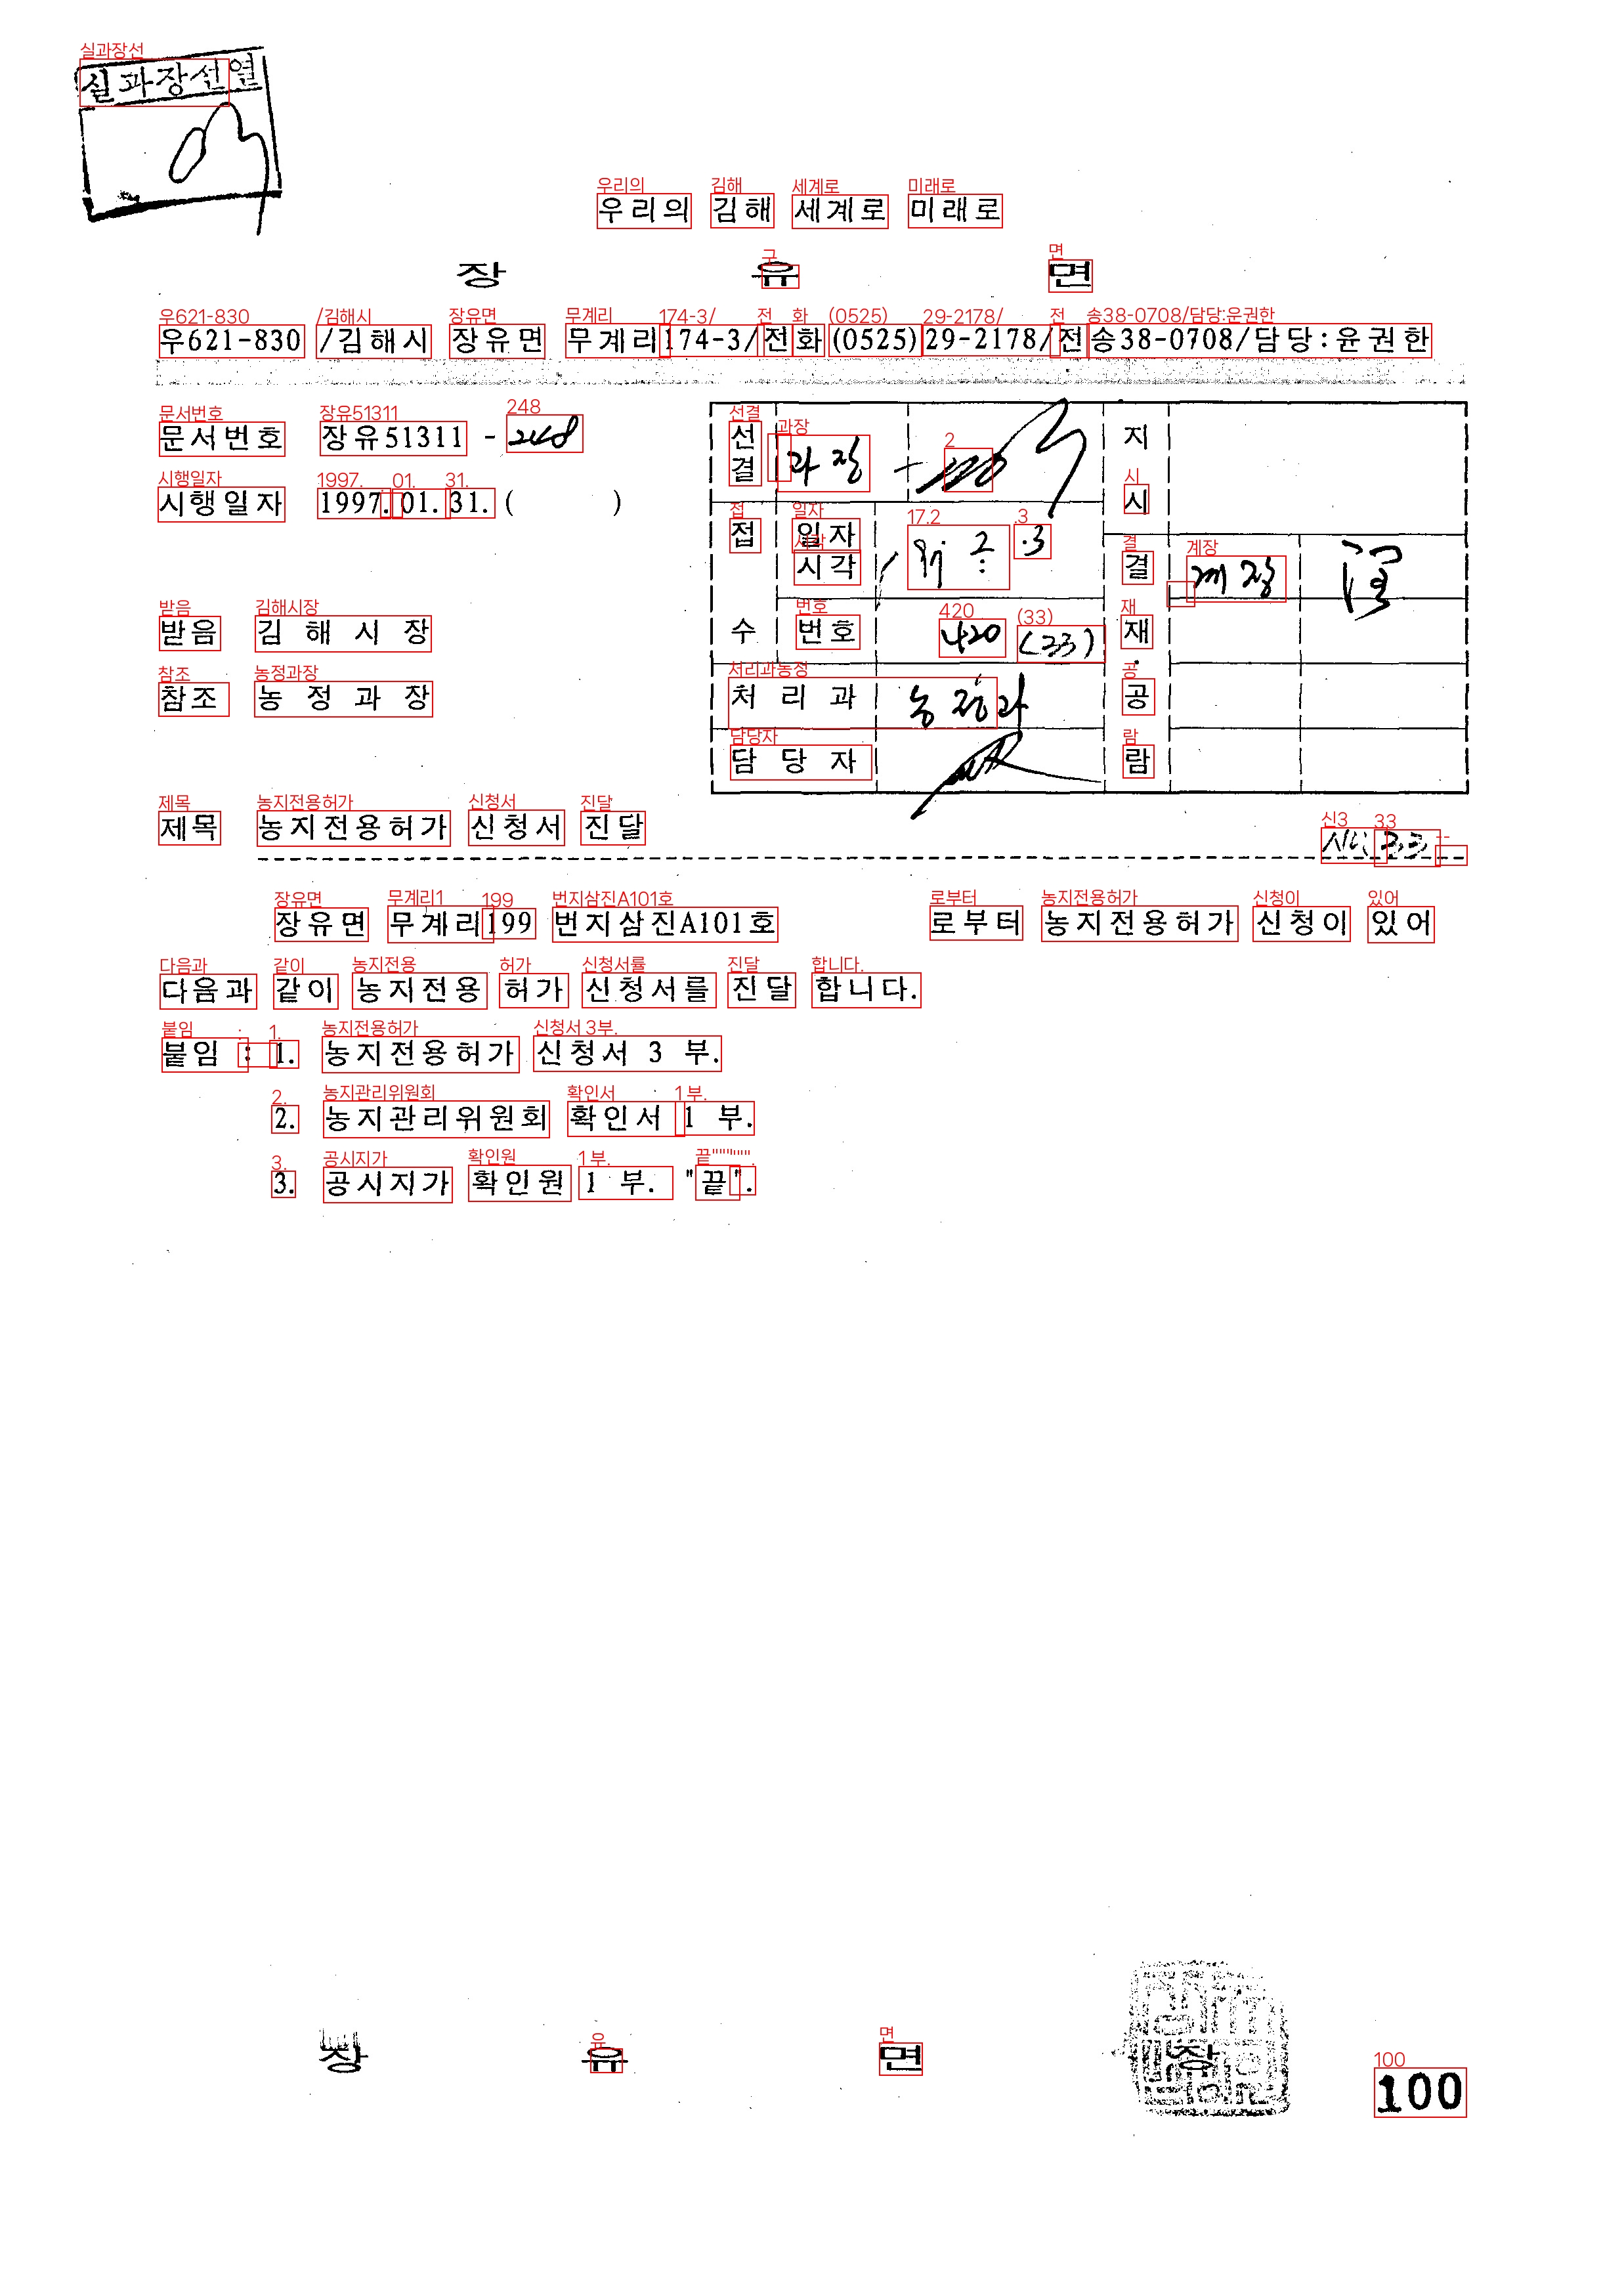 실과장선열
우리의 김해 세계로 미래로
장 유 면
우621-830 /김해시 장유면 무계리174-3/전화(0525)29-2178/전송38-0708/담당:윤권한
문서번호 장유51311 - 248
시행일자 1997.01.31. ( )
받음 김해시장
참조 농정과장
선결 과장 지시
접수 일자 시각 97. 2. 3 결재 계장
번호 420 (33)
처리과 농정과 공람
담당자
제목 농지전용허가 신청서 진달
장유면 무계리199 번지삼진A101호 로부터 농지전용허가 신청이 있어
다음과 같이 농지전용 허가 신청서를 진달 합니다.
붙임 : 1. 농지전용허가 신청서 3 부.
2. 농지관리위원회 확인서 1 부.
3. 공시지가 확인원 1 부. "끝".
장 유 면 장
100